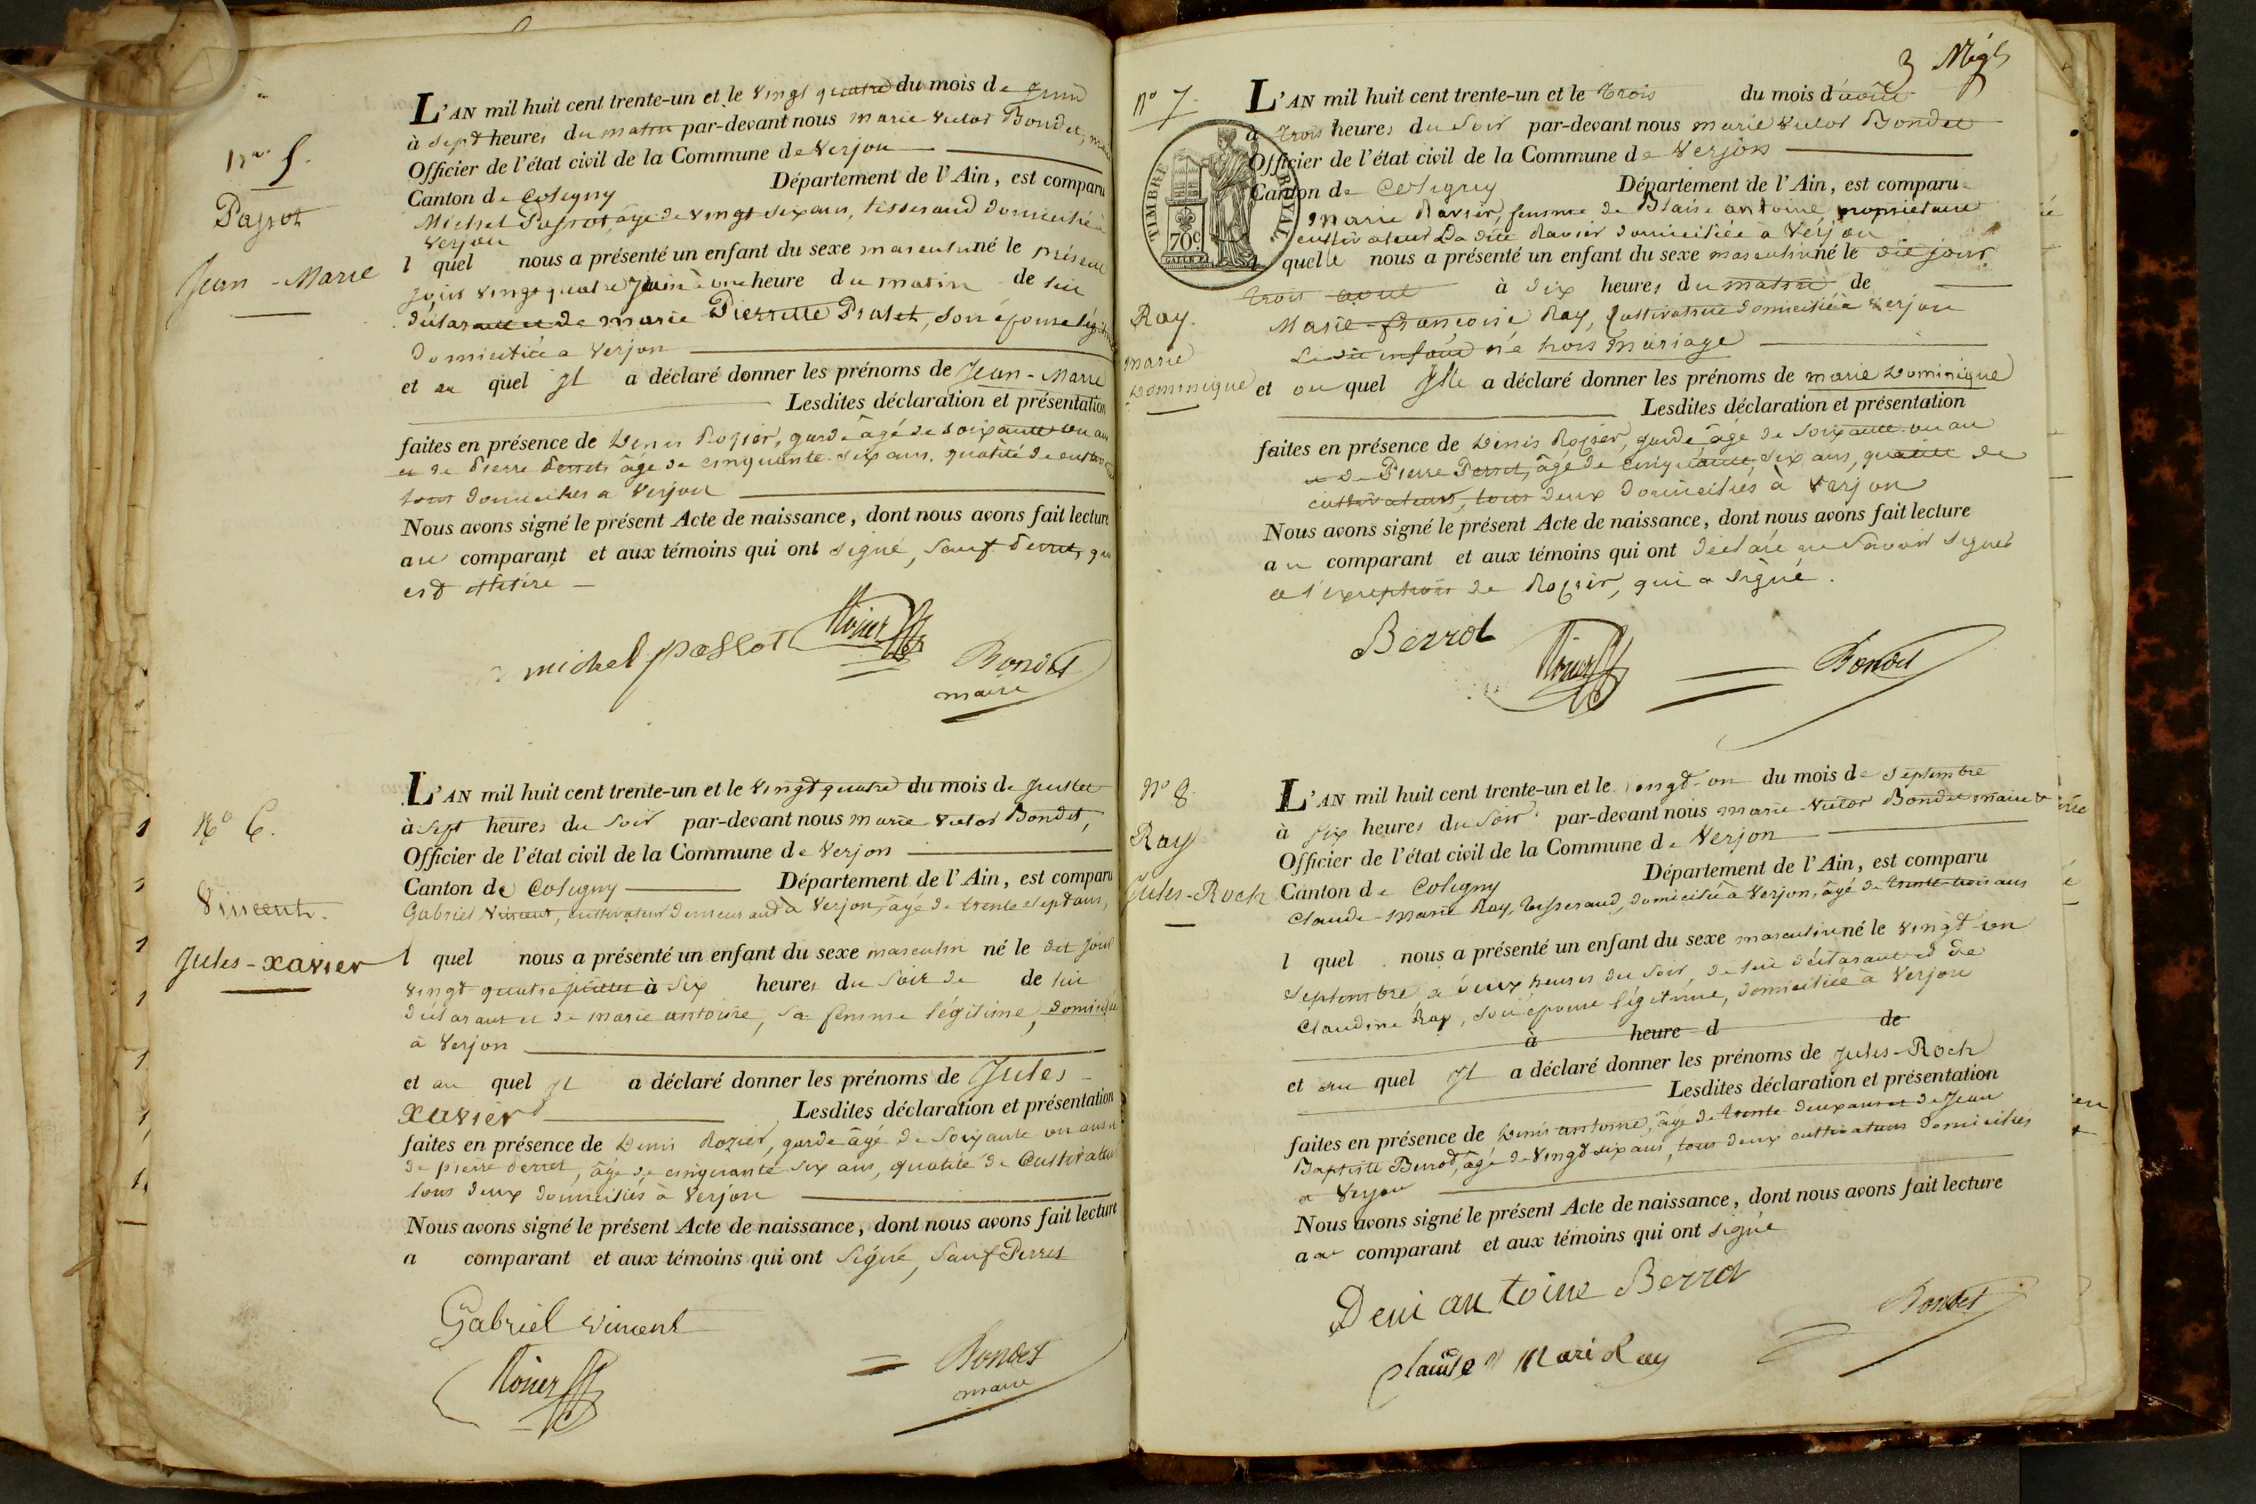 nº 5.
Passot
Jean - Marie
L'AN mil huit cent trente-un et le vingt quatre du mois de Juin
à sept heures du matin par-devant nous marie victor Bondet, maire
Officier de l'état civil de la Commune de Verjon
Canton de Coligny Département de l'Ain, est comparu
Michel Passot, âgé de vingt six ans, tisserand domicilié à
Verjon
l quel nous a présenté un enfant du sexe masculin né le présent
jour vingt quatre Juin à une heure du matin de lui
déclarant et de marie Pierrette Pralet, son épouse légitime
domiciliée a Verjon
et au quel Il a déclaré donner les prénoms de Jean - Marie
Lesdites déclaration et présentation
faites en présence de Denis Rozier, garde âgé de soixante un an
et de Pierre Perret âgé de cinquante six ans, qualité de cultivateur
tous domiciliés a Verjon
Nous avons signé le présent Acte de naissance, dont nous avons fait lecture
au comparant et aux témoins qui ont signé, sauf Perret, qui
est illitiré
michel passot Rozier Bondet
maire
Nº 6.
Vincent.
Jules - xavier
L'AN mil huit cent trente-un et le vingt quatre du mois de Juillet
à sept heures du soir par-devant nous marie victor Bondet,
Officier de l'état civil de la Commune de Verjon
Canton de Coligny Département de l'Ain, est comparu
Gabriel Vincent, cultivateur demeurand à Verjon, âgé de trente sept ans,
l quel nous a présenté un enfant du sexe masculin né le dit jour
vingt quatre juillet à six heures du soir de de lui
déclarant et de marie antoine, sa femme légitime, domiciliée
à Verjon
et au quel Il a déclaré donner les prénoms de Jules
xavier Lesdites déclaration et présentation
faites en présence de Denis Rozier, garde âgé de soixante un ans et
de pierre Perret, âgé de cinquante six ans, qualité de Cultivateur
tous deux domiciliés à Verjon
Nous avons signé le présent Acte de naissance, dont nous avons fait lecture
a comparant et aux témoins qui ont signé, sauf Perret
Gabriel vincent
Rozier Bondet
maire
3
nº 7.
TIMBRE ROYAL
70 c
Ray.
marie
Dominique
L'AN mil huit cent trente-un et le trois du mois d'août
à trois heures du soir par-devant nous marie victor Bondet
Officier de l'état civil de la Commune de Verjon
Canton de Coligny Département de l'Ain, est comparue
Marie Ravier, femme de Blaise antoine, propriétaire
cultivateur La dite Ravier domiciliée à Verjon
quelle nous a présenté un enfant du sexe masculin né le dit jour
trois août à dix heures du matin de
Marie - françoise Ray, cultivatrice domiciliée à Verjon
Le dit enfant né hors mariage
et au quel Elle a déclaré donner les prénoms de marie Dominique
Lesdites déclaration et présentation
faites en présence de Denis Rozier, garde âgé de soixante un an
et de Pierre Perret, âgé de cinquante six ans, qualité de
cultivateurs, tous deux domiciliés à Verjon
Nous avons signé le présent Acte de naissance, dont nous avons fait lecture
au comparant et aux témoins qui ont déclaré ne savoir signer
a l'exception de Rozier, qui a signé.
Berrot Rozier Bondet
Nº 8.
Ray
Jules - Roch
L'AN mil huit cent trente-un et le vingt-un du mois de septembre
à six heures du soir par-devant nous marie Victor Bondet maire &
Officier de l'état civil de la Commune de Verjon
Canton de Coligny Département de l'Ain, est comparu
Claude - Marie Ray, tisserand, domicilié à Verjon, âgé de trente-trois ans
l quel nous a présenté un enfant du sexe masculin né le vingt-un
septembre, à deux heures du soir, de lui déclarant et de
Claudine Ray, son épouse légitime, domiciliée à Verjon
à heure d de
et au quel Il a déclaré donner les prénoms de Jules - Roch
Lesdites déclaration et présentation
faites en présence de Denis antoine, âgé de trente deux ans et de Jean
Baptiste Burod, âgé de vingt six ans, tous deux cultivateurs domiciliés
a Verjon
Nous avons signé le présent Acte de naissance, dont nous avons fait lecture
a au comparant et aux témoins qui ont signé
Deni antoine Berrot
Claude Mari Ray Bondet